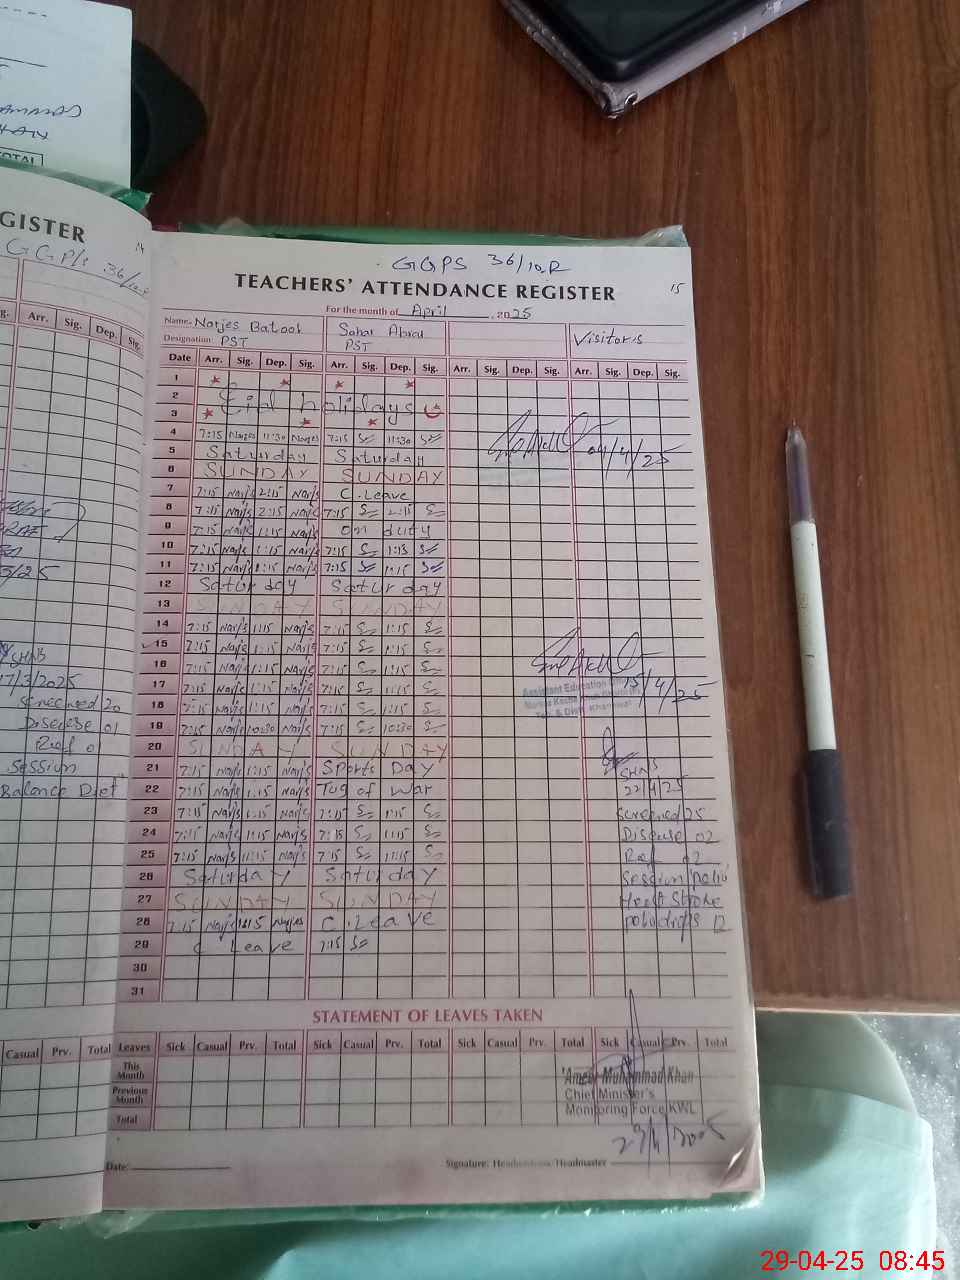 TOTAL
GISTER
14
GGP/S 36/10.R
Arr. Sig. Dep. Sig.
17/3/2025
Screened 20
Disease 01
Ref 01
Session
Balance Diet
Casual Prv. Total
GGPS 36/10.R
15
TEACHERS' ATTENDANCE REGISTER
For the month of April, 2025
Name: Narjes Batool Sahar Visitors
Designation PST PST
Date Arr. Sig. Dep. Sig. Arr. Sig. Dep. Sig. Arr. Sig. Dep. Sig. Arr. Sig. Dep. Sig.
1
2 Eid holidays
3
4 7:15 Narjes 11:30 Narjes 7:15 11:30
09/4/25
5 Saturday Saturday
6 SUNDAY SUNDAY
7 7:15 Narj's 2:15 Narj's C.Leave
8 7:15 Narj's 2:15 Narj's 7:15 2:15
9 7:15 Narj's 1:15 Narj's on duty
10 7:15 Narj's 1:15 Narj's 7:15 1:15
11 7:15 Narj's 1:15 Narj's 7:15 1:15
12 Saturday Saturday
13 SUNDAY SUNDAY
14 7:15 Narj's 1:15 Narj's 7:15 1:15
15 7:15 Narj's 1:15 Narj's 7:15 1:15
16 7:15 Narj's 1:15 Narj's 7:15 1:15
17 7:15 Narj's 1:15 Narj's 7:15 1:15
15/4/25
Assistant Education
18 7:15 Narj's 1:15 Narj's 7:15 1:15
19 7:15 Narj's 10:30 Narj's 7:15 10:30
20 SUNDAY SUNDAY
21 7:15 Narj's 1:15 Narj's Sports Day
SHNS
22 7:15 Narj's 1:15 Narj's Tug of War
22/4/25
23 7:15 Narj's 1:15 Narj's 7:15 1:15
Screened 25
24 7:15 Narj's 1:15 Narj's 7:15 1:15
Disease 02
25 7:15 Narj's 1:15 Narj's 7:15 1:15
Ref 02
26 Saturday Saturday
Session Polio
27 SUNDAY SUNDAY
Heat Stroke
28 7:15 Narj's 1:15 Narjes C.Leave
polio drops 12
29 C Leave 7:15
30
31
STATEMENT OF LEAVES TAKEN
Leaves Sick Casual Prv. Total Sick Casual Prv. Total Sick Casual Prv. Total Sick Casual Prv. Total
This Month
Previous Month
Total
Ameer Muhammad Khan
Chief Minister's
Monitoring Force KWL
29/4/2025
Date: Signature: Headmistress/Headmaster
29-04-25 08:45